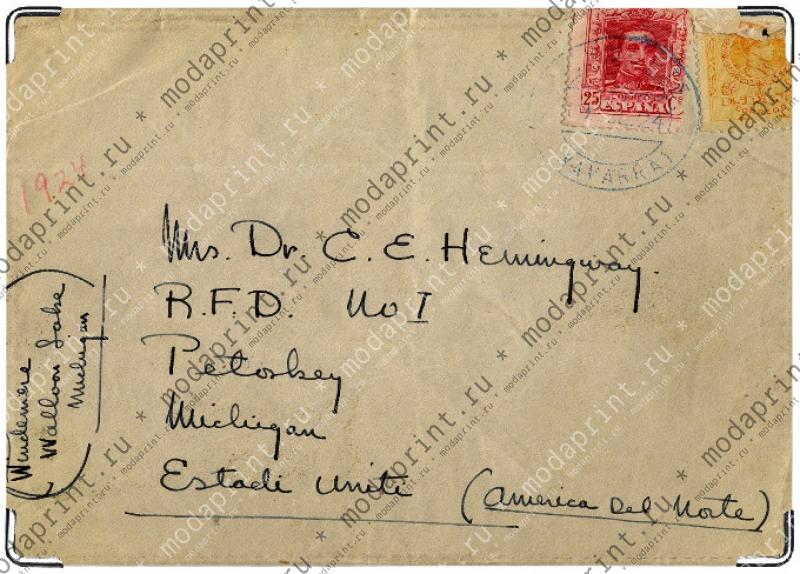 25
C
ESPAÑA
(NAVARRA)
1924
Mrs. Dr. C. E. Hemingway.
R.F.D. No I
Petoskey
Michigan
Estadi Uniti (America Del Norte)
(Windemere
Walloon Lake
Michigan)
* modaprint.ru * modaprint.ru *